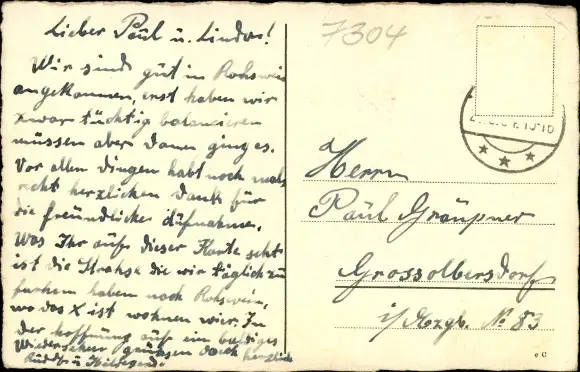 Lieber Paul u. Linder!
Wir sind gut in Rohswein
angekommen, erst haben wir
zwar tüchtig balancieren
müssen aber dann ging es.
Vor allen dingen habt noch mals
recht herzlichen Dank für
die freundliche Aufnahme.
Was Ihr auf dieser Karte seht
ist die Strahse die wir täglich zu
fahren haben nach Rohswein,
wo das X ist wohnen wier. In
der hoffnung auf ein baldiges
Wiedersehen grühsen Euch herzlich
u. Hildegard.
7304
Herrn
Paul Gräupner
Grossolbersdorf
i/ Erzgb. No 83
e C